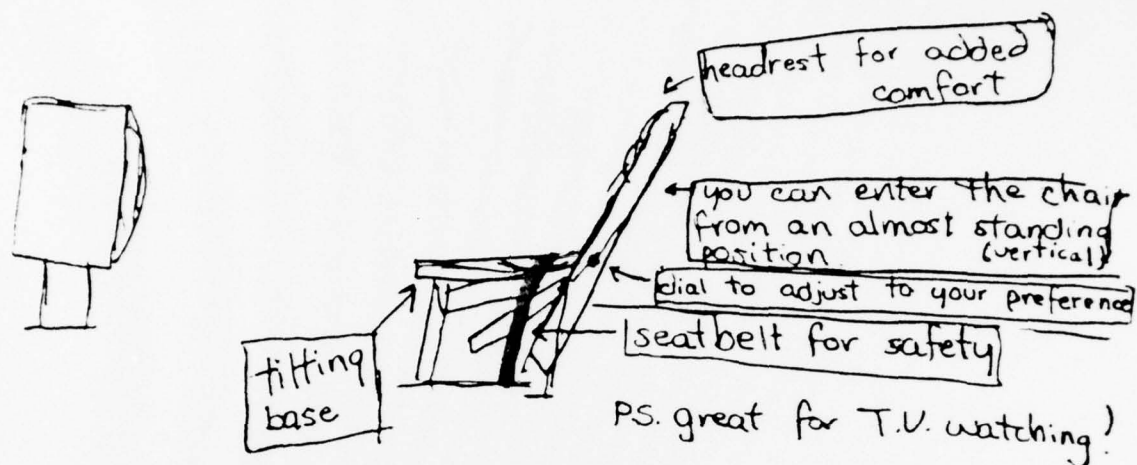 headrest for added
comfort
you can enter the chair
from an almost standing
position (vertical)
dial to adjust to your preference
seatbelt for safety
tilting
base
P.S. great for T.V. watching!